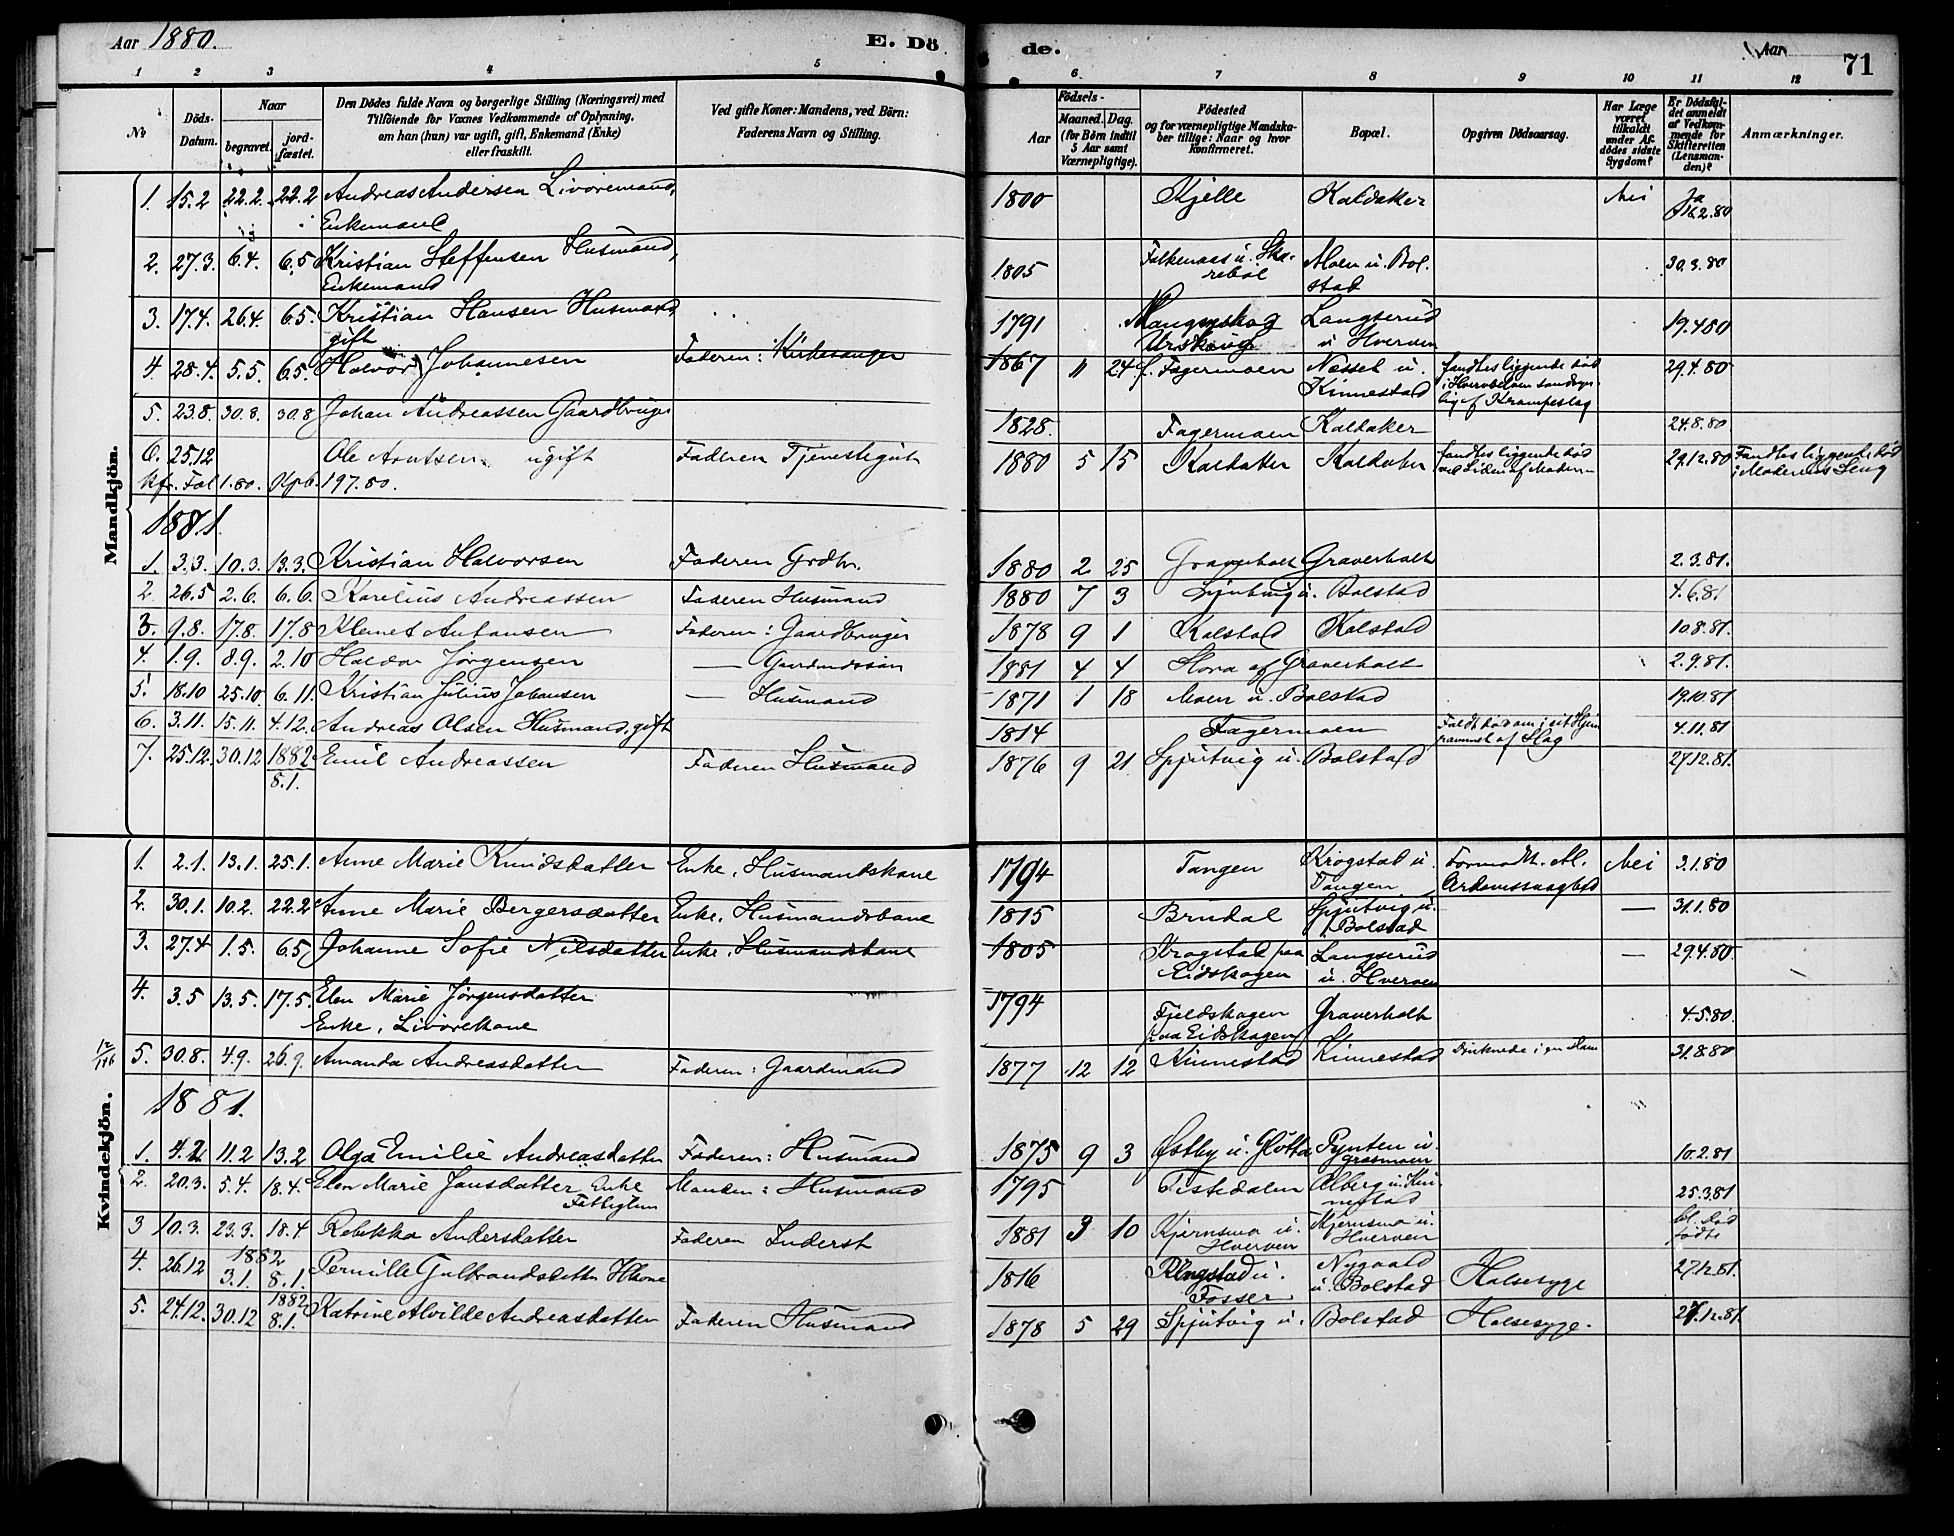 Aar 1880. E. Dö de. Aar 71
1 2 3 4 5 6 7 8 9 10 11 12
No
Döds-Datum.
Naar begravet. jord-fæstet.
Den Dödes fulde Navn og borgerlige Stilling (Næringsvei) med Tilföiende for Voxnes Vedkommende af Oplysning, om han (hun) var ugift, gift, Enkemand (Enke) eller fraskilt.
Ved gifte Koner: Mandens, ved Börn: Faderens Navn og Stilling.
Födsels- Aar Maaned. Dag. (for Börn indtil 5 Aar samt Værnepligtige).
Födested og for værnepligtige Mandska-ber tillige: Naar og hvor konfirmeret.
Bopæl.
Opgiven Dödsaarsag.
Har Læge været tilkaldt under Af-dödes sidste Sygdom?
Er Dödsfal-det anmeldt af Vedkom-mende for Skifteretten (Lensman-den)?
Anmærkninger.
Mandkjön.
1. 15.2 22.2. 22.2 Andreas Andersen Livöremand, Enkemand 1800 Kjelle Kaldaker Nei Ja 16.2.80
2. 27.3. 6.4. 6.5 Kristian Steffensen Husmand, Enkemand 1805 Falkenæs u. Ska-rebol Moen u. Bol-stad 30.3.80
3. 17.4. 26.4. 6.5. Kristian Hansen Husmand gift 1791 Mangenskog Urskoug Langserud u Hverven 19.4.80
4. 28.4. 5.5. 6.5. Halvor Johannesen Faderen: Kirkesanger 1867 11 24 f. Fagermoen Næsset u. Kinnestad fandtes liggende död i Hvervselven sandsyn-lig af Krampeslag 29.4.80
5. 23.8. 30.8. 30.8 Johan Andreassen Gaardbruger 1828. Fagermoen Kaldaker 24.8.80
6. 25.12 Ole Arntsen ugift Faderen Tjenestegut 1880 5 15 Kaldaker Kaldaker fandtes liggende död ved Siden af Moderen 29.12.80 Fandtes liggende död i Moderens Seng
1.80. 197.80.
1881.
1. 3.3. 10.3. 13.3. Kristian Halvorsen Faderen Grdbr. 1880 2 25 Graverholt Graverholt 2.3.81.
2. 26.5 2.6. 6.6. Karelius Andreassen Faderen Husmand 1880 7 3 Spjutvig u. Bolstad 4.6.81
3. 9.8. 17.8. 17.8 Klemet Antonsen Faderen: Gaardbruger 1878 9 1 Kolstad Kolstad 10.8.81.
4. 1.9. 8.9. 2.10 Haldor Jørgensen — Gaardmdssön 1881 4 4 Hora af Graverholt 2.9.81.
5. 18.10 25.10. 6.11. Kristian Julius Johansen — Husmand 1871 1 18 Moen u. Bolstad 19.10.81
6. 3.11. 15.11. 4.12. Andreas Olsen Husmand, gift 1814 Fagermoen Faldt död om i sit Hjem rammet af Slag 4.11.81
7. 25.12. 30.12 1882 8.1. Emil Andreassen Faderen Husmand 1876 9 21 Spjutvig u. Bolstad 27.12.81.
Kvindekjön.
1. 2.1. 13.1. 25.1. Anne Marie Knudsdatter Enke, Husmandskone 1794 Tangen Krogstad u. Tangen Formodtl. Al. Nei 3.1.80
2. 30.1. 10.2. 22.2 Anne Marie Bergersdatter Enke, Husmandskone 1815 Brudal Spjutvig u. Bolstad — 31.1.80
3. 27.4 1.5. 6.5 Johanne Sofie Nilsdatter Enke, Husmandskone 1805 Krogstad paa Eidskogen Langserud u. Hverven — 29.4.80
4. 3.5 13.5. 17.5. Elen Marie Jørgensdatter Enke, Livörekone 1794 Fjeldskogen paa Eidskogen Graverholt 4.5.80.
5. 30.8. 4.9. 26.9. Amanda Andreasdatter Faderen: Gaardmand 1877 12 12 Kinnestad Kinnestad Druknede i en Dam 31.8.80
1881.
1. 4.2 11.2 13.2 Olga Emilie Andreasdatter Faderen: Husmand 1875 9 3 Østby u. Gløtta Pynten u. Grasmoen 10.2.81
2. 20.3. 5.4. 18.4. Elen Marie Jansdatter Enke Fattiglem Manden: Husmand 1795 Tistedalen Alberg u. Kin-nestad 25.3.81
3 10.3. 23.3. 18.4 Rebekka Andersdatter Faderen Inderst 1881 3 10 Kjernsmo u. Hverven Kjernsmo u. Hverven bl. död födte
4. 26.12 1882 3.1. 8.1. Pernille Gulbrandsdatter Hkone 1816 Ringstad u. Fosser Nygaard u. Bolstad Halsesyge 27.12.81.
5. 24.12. 30.12 1882 8.1. Katrine Alvilde Andreasdatter Faderen Husmand 1878 5 29 Spjutvig u. Bolstad Halsesyge. 27.12.81.